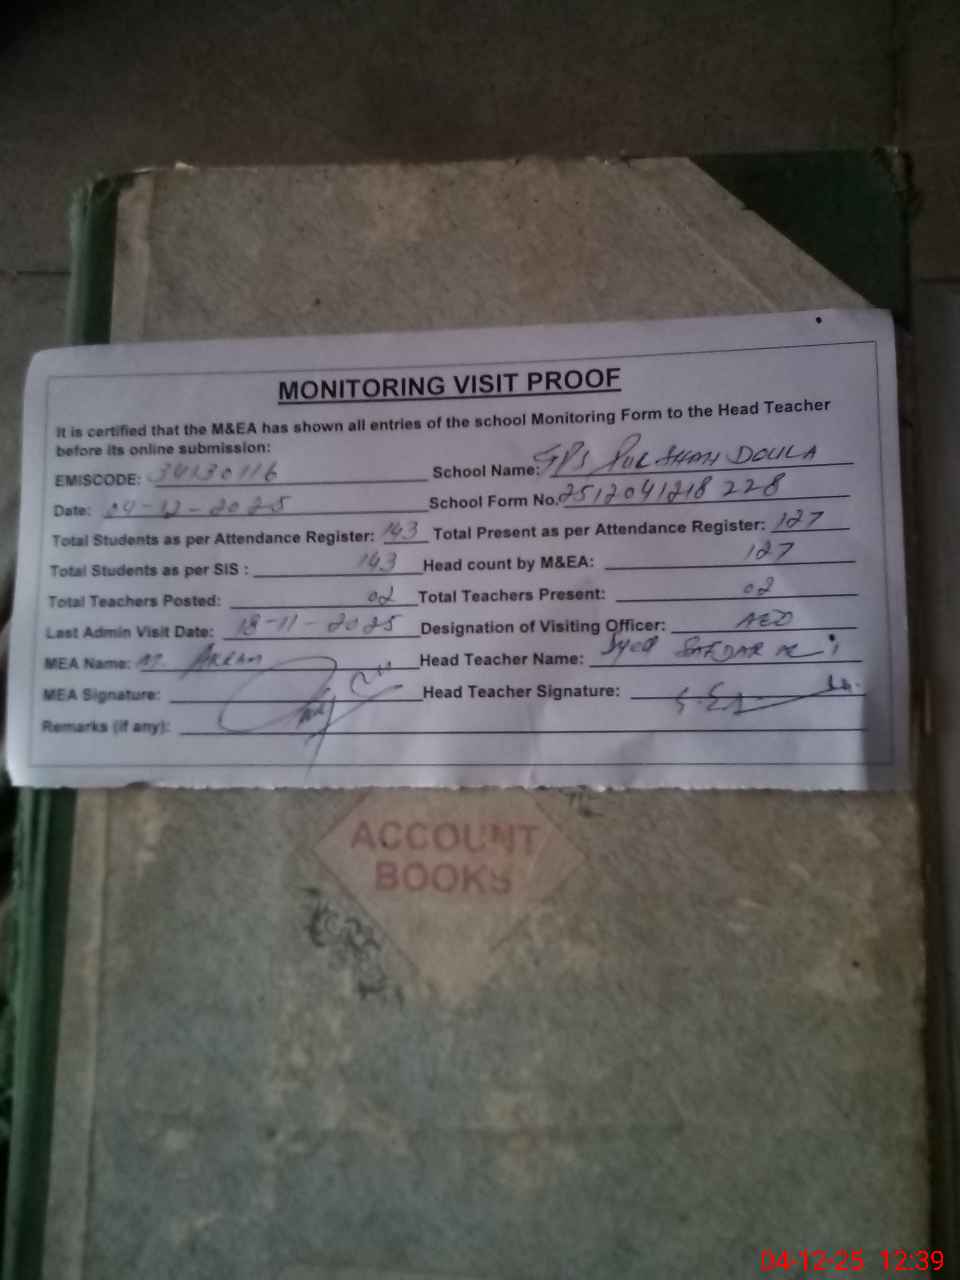 MONITORING VISIT PROOF
It is certified that the M&EA has shown all entries of the school Monitoring Form to the Head Teacher
before its online submission:
EMISCODE: 34130116 School Name: GPS PUL SHAH DOULA
Date: 04-12-2025 School Form No. 2512041218 228
Total Students as per Attendance Register: 143 Total Present as per Attendance Register: 127
Total Students as per SIS : 143 Head count by M&EA: 127
Total Teachers Posted: 02 Total Teachers Present: 02
Last Admin Visit Date: 18-11-2025 Designation of Visiting Officer: AEO
MEA Name: M. AKRAM Head Teacher Name: Syed SAFDAR
MEA Signature: Head Teacher Signature:
Remarks (if any):
ACCOUNT
BOOKS
04-12-25 12:39